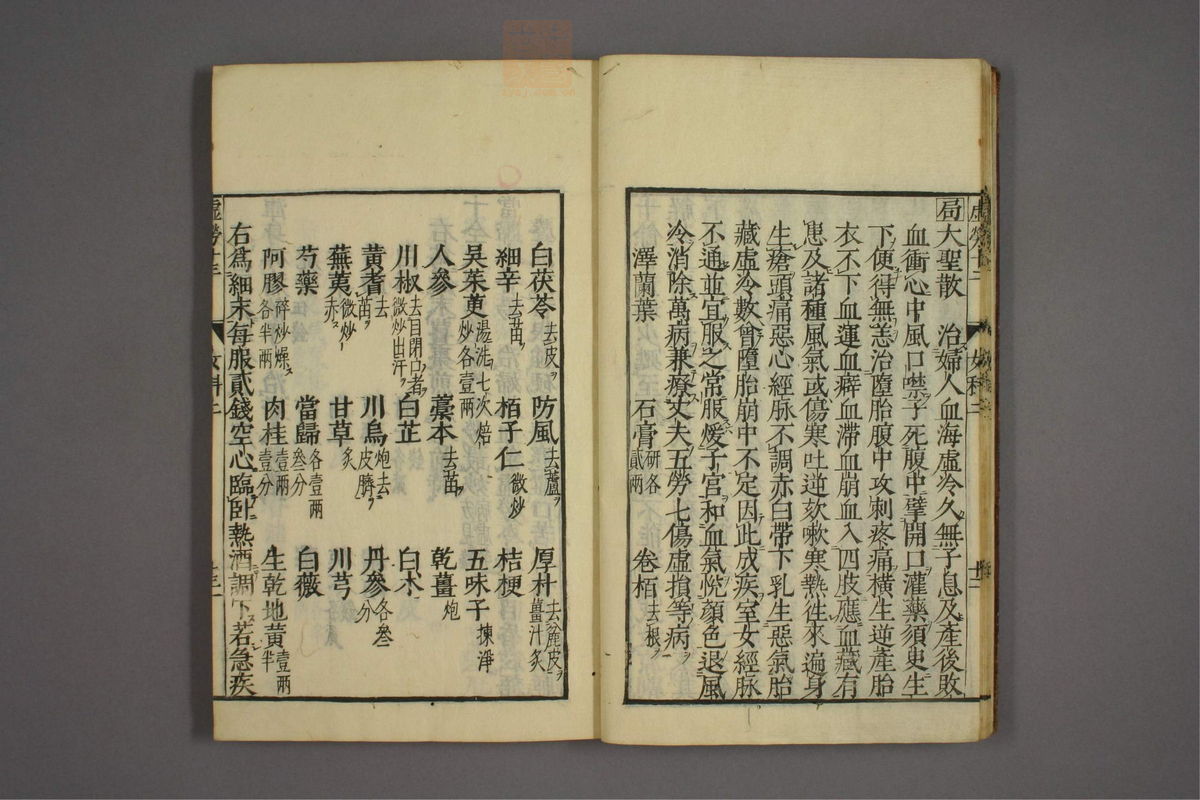 局大聖散　治婦人血海虛冷久無子息及產後敗
血衝心中風口噤子死腹中擘開口灌藥須臾生
下便得無恙治墮胎腹中攻刺疼痛橫生逆產胎
衣不下血運血癖血滯血崩血入四肢應血藏有
患及諸種風氣或傷寒吐逆欬嗽寒熱徃來遍身
生瘡頭痛惡心經脉不調赤白帶下乳生惡氣胎
藏虛冷數曾墮胎崩中不定因此成疾室女經脉
不通並宜服之常服煖子宮和血氣悅顏色退風
冷消除萬病兼療丈夫五勞七傷虛損等病
澤蘭葉　石膏研各貳兩　卷栢去根
白茯苓去皮　防風去蘆　厚朴去麁皮薑汁炙
細辛去苗　栢子仁微炒　桔梗
吳茱萸湯洗七次焙炒各壹兩　五味子揀淨
人參　藁本去苗　乾薑炮
川椒去目閉口者微炒出汗　白芷　白朮
黃耆去苗　川烏炮去皮臍　丹參各叁分
蕪荑微炒赤　甘草炙　川芎
芍藥　當歸各壹兩叁分　白薇
阿膠碎炒燥各半兩　肉桂壹兩壹分　生乾地黃壹兩半
右爲細末每服貳錢空心臨臥熱酒調下若急疾